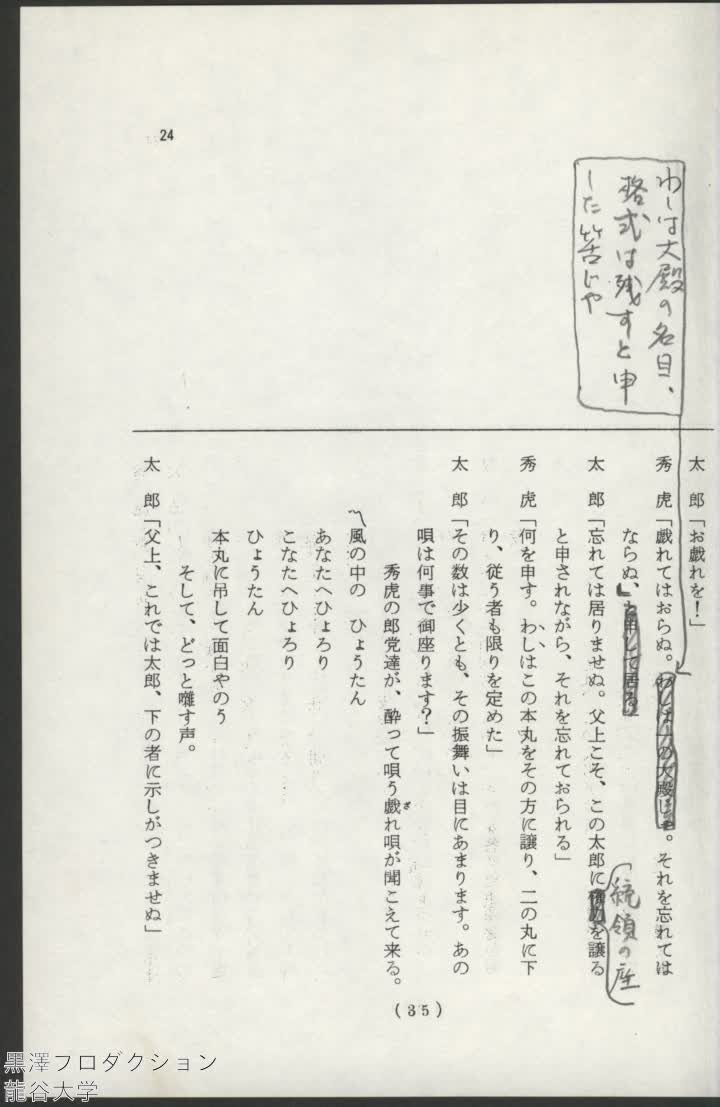 24
わしは大殿の名目、
格式は残すと申
した筈じゃ
太　郎「お戯れを！」
秀　虎「戯れてはおらぬ。わしは一の大殿じゃ。それを忘れては
ならぬ、と申して居る」
統領の座
太　郎「忘れては居りませぬ。父上こそ、この太郎に を譲る
と申されながら、それを忘れておられる」
秀　虎「何を申す。わしはこの本丸をその方に譲り、二の丸に下
り、従う者も限りを定めた」
太　郎「その数は少くとも、その振舞いは目にあまります。あの
唄は何事で御座ります？」
秀虎の郎党達が、酔って唄う戯れ唄が聞こえて来る。
ざ
〽風の中の　ひょうたん
あなたへひょろり
こなたへひょろり
ひょうたん
本丸に吊して面白やのう
そして、どっと囃す声。
太　郎「父上、これでは太郎、下の者に示しがつきませぬ」
(35)
黒澤プロダクション
龍谷大学